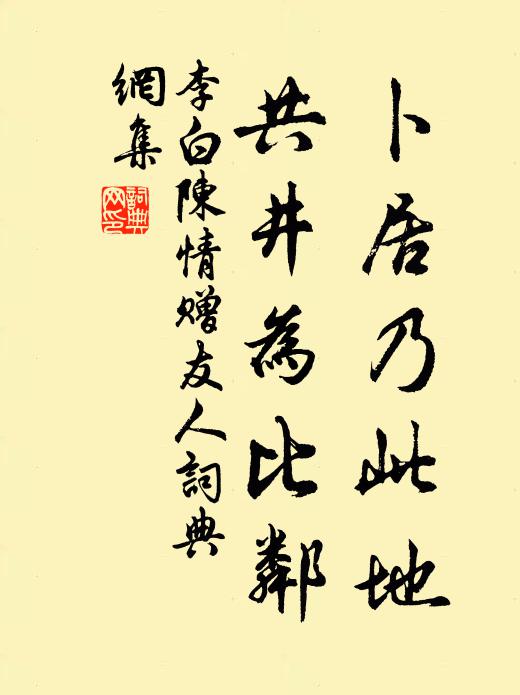 卜居乃此地
共井為比鄰
李白陳情贈友人詞典
網集
詞典網印